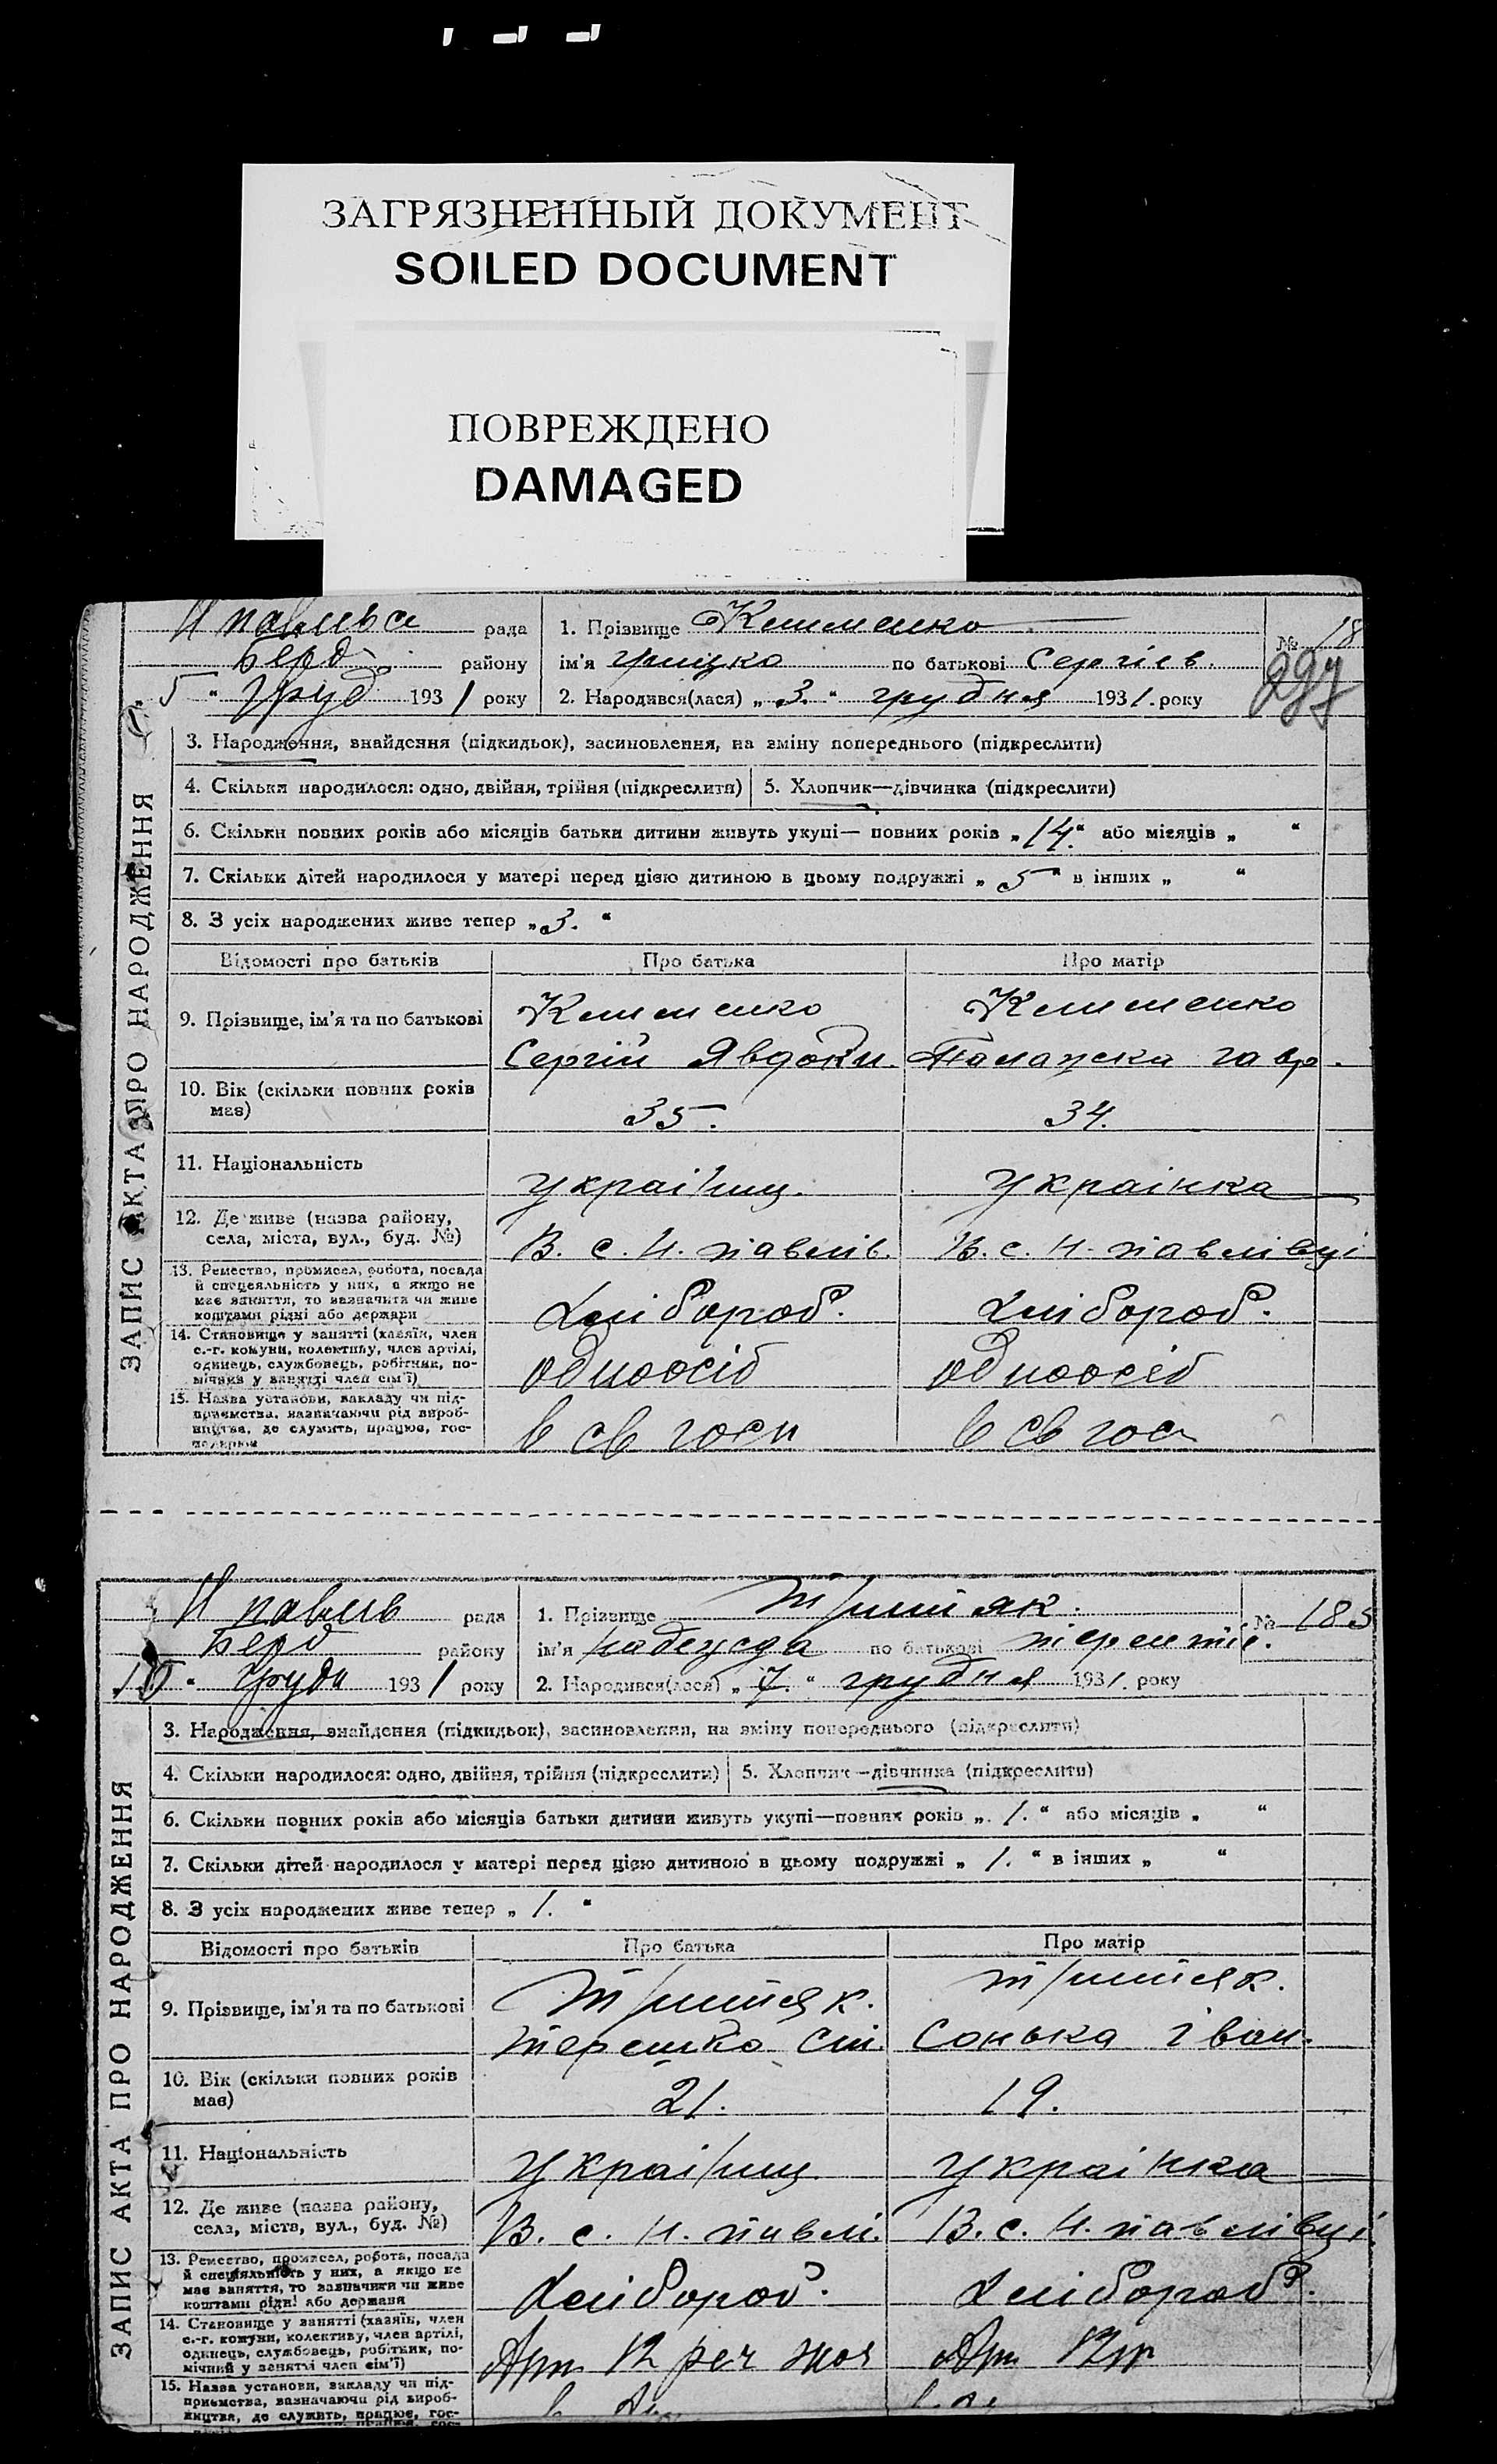 ЗАГРЯЗНЕННЫЙ ДОКУМЕНТ
SOILED DOCUMENT
ПОВРЕЖДЕНО
DAMAGED
рада
Берд. району
"5" груд 1931 року
1. Прізвище Клименко
ім'я Грицко по батькові Сергієв.
2. Народився(лася) „3." грудня 1931. року
№ 18
297
ЗАПИС АКТА ПРО НАРОДЖЕННЯ
3. Народження, знайдення (підкидьок), засиновлення, на зміну попереднього (підкреслити)
4. Скільки народилося: одно, двійня, трійня (підкреслити)
5. Хлопчик—дівчинка (підкреслити)
6. Скільки повних років або місяців батьки дитини живуть укупі— повних років „14." або місяців „ "
7. Скільки дітей народилося у матері перед цією дитиною в цьому подружжі „5" в інших „ "
8. З усіх народжених живе тепер „3. "
Відомості про батьків
Про батька
Про матір
9. Прізвище, ім'я та по батькові
Клименко
Сергій Явдоки.
Клименко
Палажка Гавр.
10. Вік (скільки повних років
має)
35.
34.
11. Національність
украіниц.
украінка
12. Де живе (назва району,
села, міста, вул., буд. №)
В. с. Н. павлів.
В. с. Н. павлівці
13. Ремество, промисел, робота, посада
й спеціяльність у них, а якщо не
має заняття, то зазначити чи живе
коштами рідні або держави
хлібороб.
хлібороб.
14. Становище у занятті (хазяїн, член
с.-г. комуни, колективу, член артілі,
одинець, службовець, робітник, по-
мічник у занятті член сім'ї)
одноосіб
одноосіб
15. Назва установи, закладу чи під-
приємства, зазначаючи рід вироб-
ництва, де служить, працює, гос-
подарює
в св госп
в св гос
рада
Берд району
10 " груд 1931 року
1. Прізвище Трипіяк.
ім'я Надежда по батькові Терентіє.
2. Народився(лася) „7. " грудня 1931. року
№ 185
ЗАПИС АКТА ПРО НАРОДЖЕННЯ
3. Народження, знайдення (підкидьок), засиновлення, на зміну попереднього (підкреслити)
4. Скільки народилося: одно, двійня, трійня (підкреслити)
5. Хлопчик—дівчинка (підкреслити)
6. Скільки повних років або місяців батьки дитини живуть укупі—повних років „ 1. " або місяців „ "
7. Скільки дітей народилося у матері перед цією дитиною в цьому подружжі „ 1. " в інших „ "
8. З усіх народжених живе тепер „ 1. "
Відомості про батьків
Про батька
Про матір
9. Прізвище, ім'я та по батькові
Терешко
Сонька Іван.
10. Вік (скільки повних років
має)
21.
19.
11. Національність
украіниц
украінка
12. Де живе (назва району,
села, міста, вул., буд. №)
В. с. Н. павлі.
В. с. Н. павлівці
13. Ремество, промисел, робота, посада
й спеціяльність у них, а якщо не
має заняття, то зазначити чи живе
коштами рідні або держави
хлібороб.
хлібороб.
14. Становище у занятті (хазяїн, член
с.-г. комуни, колективу, член артілі,
одинець, службовець, робітник, по-
мічний у занятті член сім'ї)
15. Назва установи, закладу чи під-
приємства, зазначаючи рід вироб-
ництва, де служить, працює, гос-